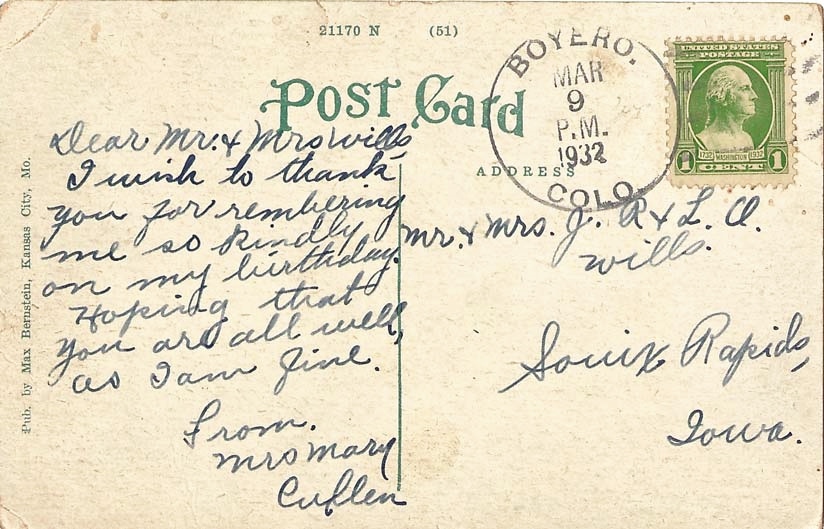 21170 N (51)
POST CARD
BOYERO.
MAR
9
P.M.
1932
COLO.
UNITED STATES
POSTAGE
1732 WASHINGTON 1932
1 CENT 1
ADDRESS
Dear Mr. & Mrs Wills
I wish to thank
you for rembering
me so kindly
on my birthday.
Hoping that
you are all well,
as I am fine.
From.
Mrs Mary
Cullen
Mr. & Mrs. J. R & L. O.
Wills.
Souix Rapids,
Iowa.
Pub. by Max Bernstein, Kansas City, Mo.